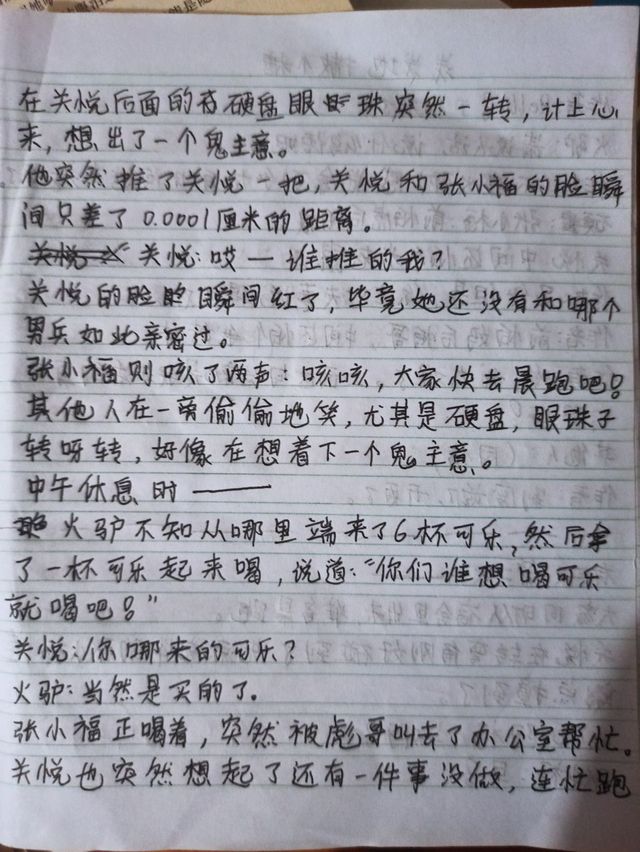 在关悦后面的有硬盘眼珠突然一转，计上心
来，想出了一个鬼主意。
他突然推了关悦一把，关悦和张小福的脸瞬
间只差了0.0001厘米的距离。
关悦：哎一谁推的我？
关悦的脸瞬间红了，毕竟她还没有和哪个
男兵如此亲密过。
张小福则咳了两声：咳咳，大家快去晨跑吧！
其他人在一旁偷偷地笑，尤其是硬盘，眼珠子
转呀转，好像在想着下一个鬼主意。
中午休息时——
火驴不知从哪里端来了6杯可乐，然后拿
了一杯可乐起来喝，说道：“你们谁想喝可乐
就喝吧！”
关悦：你哪来的可乐？
火驴：当然是买的了。
张小福正喝着，突然被彪哥叫去了办公室帮忙。
关悦也突然想起了还有一件事没做，连忙跑